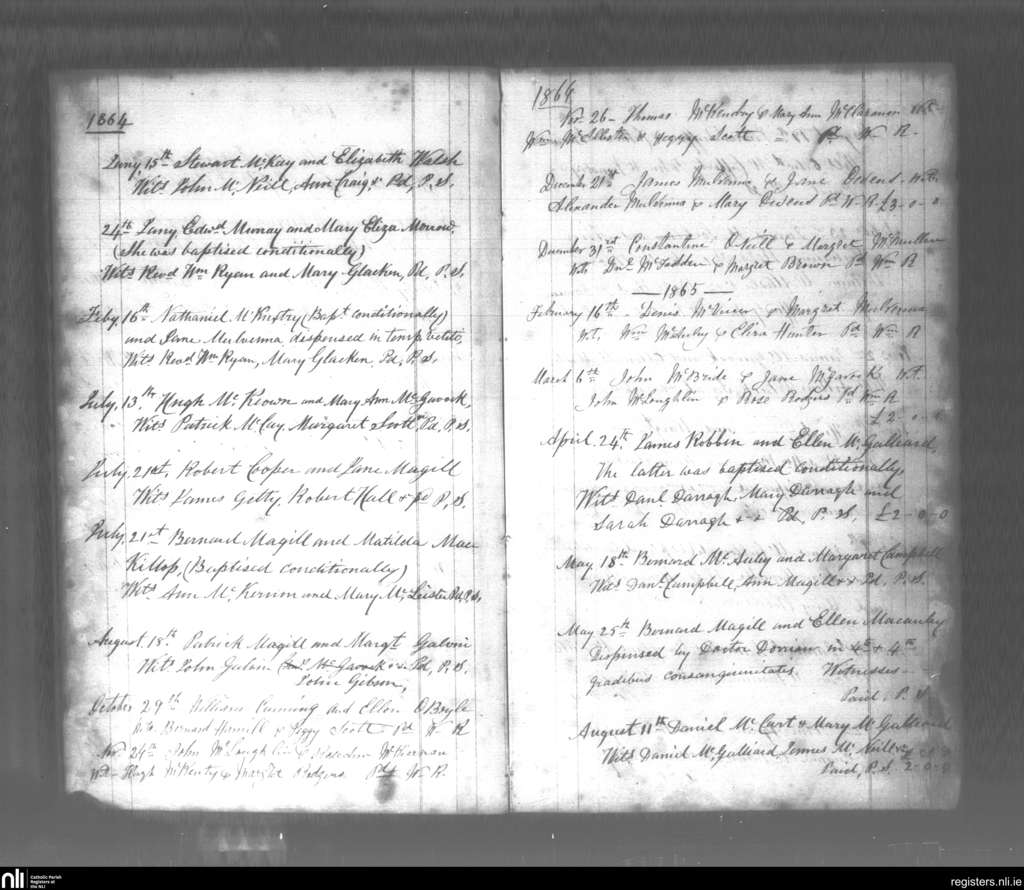 1864
Jany, 15th Stewart McKay and Elizabeth Walsh
Wits John Mc Neill, Ann Craig + Pd, P. S.
24th Jany Edwd Murray and Mary Eliza Morrow.
(She was baptised conditionally)
Wits Revd Wm Ryan and Mary Glacken, Pd, P. S.
Feby, 16th Nathaniel (Bapt conditionally)
and Jane Mulvenna dispensed in temp vetito,
Wits Revd Wm Ryan, Mary Glacken, Pd, P. S.
July, 13th Hugh Mc Keown and Mary Ann Mc Gavock,
Wits Patrick McCay, Margaret Scott Pd, P. S.
July, 21st, Robert Cooper and Jane Magill
Wits James Getty, Robert Hall + pd P, S.
July, 21st Bernard Magill and Matilda Mac
Killop, (Baptised conditionally)
Wits Ann Mc Kernon and Mary Mc Pd, P. S.
August 18th Patrick Magill and Margt Galvin
Wits John Pd, P. S.
John Gibson,
October 29th William Cuning and Ellen O'Boyle
Wits Bernard Hamill & Peggy Scott Pd W R
Nov 24th John McLoughlin &
Wit Hugh McHenty & Margret Pd W R.
1864
Nov. 26 - Thomas McHendry & Mary Ann Wit
Wm & Peggy Scott Pd W R.
December 21st James Mulvenna & Jane Wit.
Alexander Mulvenna & Mary Pd W R £3-0-0
December 31st Constantine O'Neill & Margret McMullan
Wits McFadden & Margret Brown Pd Wm R
— 1865 —
February 16th - Denis & Margret Mulvenna
Wt, Wm & Eliza Hunter Pd Wm R
March 6th John McBride & Jane Wt.
John McLoughlin & Rose Rodgers Pd Wm R
£2-0-0
April 24th James Robbin and Ellen Mc Galliard,
The latter was baptised conditionally,
Wits Danl Darragh, Mary Darragh and
Sarah Darragh + + Pd, P. S. £2-0-0
May 18th Bernard Mc Auley and Margaret Campbell
Wits Danl Campbell, Ann Magill + + Pd, P. S.
May 25th Bernard Magill and Ellen Macauley
Dispensed by Doctor Dorrian in 4th + 4th
gradibus consanguinitatis. Witnesses -
Paid, P. S.
August 11th Daniel Mc Cart & Mary Mc Galliard
Wits Daniel Mc Galliard, James
Paid, P. S. 2-0-0
nli
Catholic Parish
Registers at
the NLI
registers.nli.ie